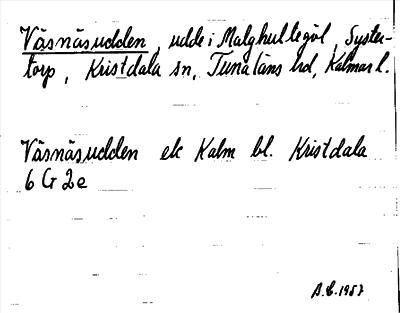 Väsnäsudden, udde i Malghultegöl, Syster-
torp, Kristdala sn, Tunaläns hd, Kalmar l.
Väsnäsudden ek Kalm bl. Kristdala
6 G 2e
B.C. 1957